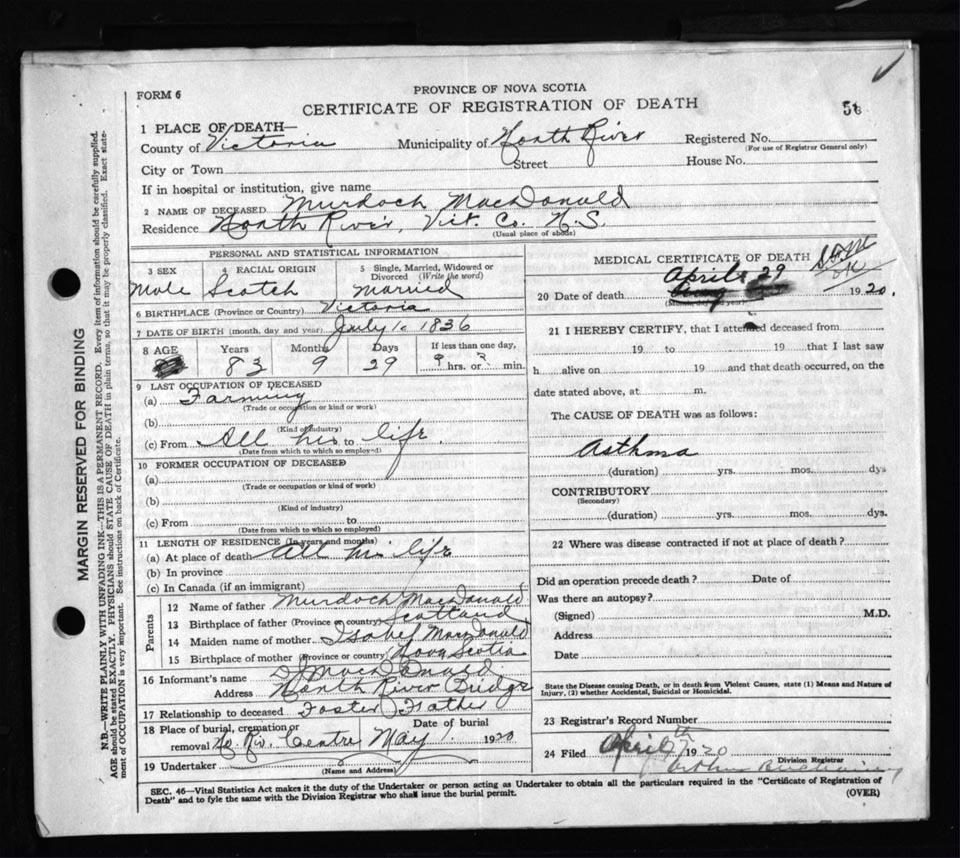 FORM 6
PROVINCE OF NOVA SCOTIA
CERTIFICATE OF REGISTRATION OF DEATH
1 PLACE OF DEATH—
County of Victoria Municipality of North River Registered No.
(For use of Registrar General only)
City or Town Street House No.
If in hospital or institution, give name
2 NAME OF DECEASED Murdoch MacDonald
Residence North River, Vict. Co. N.S.
(Usual place of abode)
PERSONAL AND STATISTICAL INFORMATION
3 SEX 4 RACIAL ORIGIN 5 Single, Married, Widowed or Divorced (Write the word)
Male Scotch Married
6 BIRTHPLACE (Province or Country) Victoria
7 DATE OF BIRTH (month, day and year) July 1. 1836
8 AGE Years Months Days If less than one day,
83 9 29 hrs. or min.
9 LAST OCCUPATION OF DECEASED
(a) Farming
(Trade or occupation or kind or work)
(b)
(Kind of industry)
(c) From All his to life.
(Date from which to which so employed)
10 FORMER OCCUPATION OF DECEASED
(a)
(Trade or occupation or kind of work)
(b)
(Kind of industry)
(c) From to
(Date from which to which so employed)
11 LENGTH OF RESIDENCE (In years and months)
(a) At place of death all his life
(b) In province
(c) In Canada (if an immigrant)
Parents
12 Name of father Murdoch MacDonald
13 Birthplace of father (Province or country) Scotland
14 Maiden name of mother Isabel MacDonald
15 Birthplace of mother (Province or country) Nova Scotia
16 Informant's name MacDonald.
Address North River Bridge
17 Relationship to deceased Foster Father
18 Place of burial, cremation or Date of burial
removal No. Riv. Centre May 1. 1920
19 Undertaker
(Name and Address)
MEDICAL CERTIFICATE OF DEATH
April 29
20 Date of death 1920.
21 I HEREBY CERTIFY, that I attended deceased from
19 to 19 that I last saw
h alive on 19 and that death occurred, on the
date stated above, at m.
The CAUSE OF DEATH was as follows:
Asthma
(duration) yrs. mos. dys
CONTRIBUTORY
(Secondary)
(duration) yrs. mos. dys.
22 Where was disease contracted if not at place of death?
Did an operation precede death? Date of
Was there an autopsy?
(Signed) M.D.
Address
Date
State the Disease causing Death, or in death from Violent Causes, state (1) Means and Nature of
Injury, (2) whether Accidental, Suicidal or Homicidal.
23 Registrar's Record Number
24 Filed April 1920
Division Registrar
SEC. 46—Vital Statistics Act makes it the duty of the Undertaker or person acting as Undertaker to obtain all the particulars required in the "Certificate of Registration of
Death" and to fyle the same with the Division Registrar who shall issue the burial permit. (OVER)
MARGIN RESERVED FOR BINDING
N.B.—WRITE PLAINLY WITH UNFADING INK—THIS IS A PERMANENT RECORD. Every item of information should be carefully supplied.
AGE should be stated EXACTLY. PHYSICIANS should STATE CAUSE OF DEATH in plain terms, so that it may be properly classified. Exact state-
ment of OCCUPATION is very important. See instructions on back of Certificate.